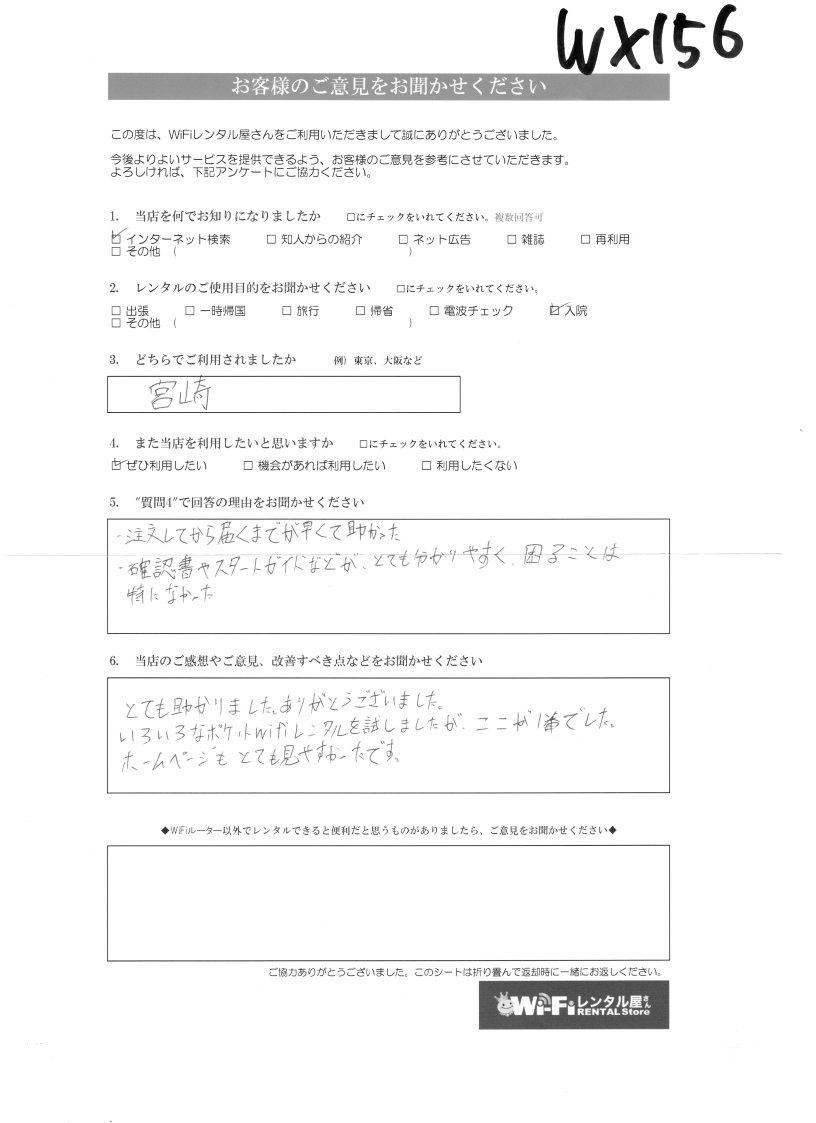 WX156
お客様のご意見をお聞かせください
この度は、WiFiレンタル屋さんをご利用いただきまして誠にありがとうございました。
今後よりよいサービスを提供できるよう、お客様のご意見を参考にさせていただきます。
よろしければ、下記アンケートにご協力ください。
1. 当店を何でお知りになりましたか □にチェックをいれてください。複数回答可
☑ インターネット検索 □ 知人からの紹介 □ ネット広告 □ 雑誌 □ 再利用
□ その他 ( )
2. レンタルのご使用目的をお聞かせください □にチェックをいれてください。
□ 出張 □ 一時帰国 □ 旅行 □ 帰省 □ 電波チェック ☑ 入院
□ その他 ( )
3. どちらでご利用されましたか 例）東京、大阪など
宮崎
4. また当店を利用したいと思いますか □にチェックをいれてください。
☑ ぜひ利用したい □ 機会があれば利用したい □ 利用したくない
5. "質問4"で回答の理由をお聞かせください
・注文してから届くまでが早くて助かった
・確認書やスタートガイドなどが、とても分かりやすく、困ることは
特になかった
6. 当店のご感想やご意見、改善すべき点などをお聞かせください
とても助かりました。ありがとうございました。
いろいろなポケットwifiレンタルを試しましたが、ここが1番でした。
ホームページもとても見やすかったです。
◆WiFiルーター以外でレンタルできると便利だと思うものがありましたら、ご意見をお聞かせください◆
ご協力ありがとうございました。このシートは折り畳んで返却時に一緒にお返しください。
Wi-Fiレンタル屋さん
RENTAL Store